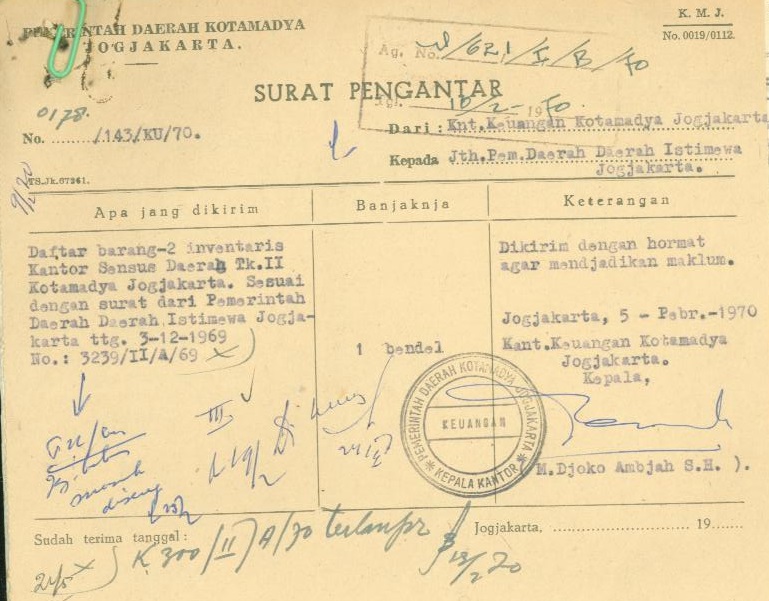 PEMERINTAH DAERAH KOTAMADYA
JOGJAKARTA.
K. M. J.
No. 0019/0112.
Ag. No. /621/I/B/70
SURAT PENGANTAR
Tgl. 10/2 - 1970.
0178.
No. ......../143/KU/70.
Dari : Knt.Keuangan Kotamadya Jogjakarta
Kepada Jth.Pem.Daerah Daerah Istimewa
Jogjakarta.
TS.Jk.67261.
9/2 70
Apa jang dikirim
Banjaknja
Keterangan
Daftar barang-2 inventaris
Kantor Sensus Daerah Tk.II
Kotamadya Jogjakarta. Sesuai
dengan surat dari Pemerintah
Daerah Daerah Istimewa Jogja-
karta ttg. 3-12-1969
No.: 3239/II/A/69
1 bendel
Dikirim dengan hormat
agar mendjadikan maklum.
Jogjakarta, 5 - Pebr.-1970
Kant.Keuangan Kotamadya
Jogjakarta.
Kepala,
PEMERINTAH DAERAH KOTAMADYA JOGJAKARTA
KEUANGAN
KEPALA KANTOR
( M.Djoko Ambjah S.H. ).
III
19/2
Sudah terima tanggal :
K 300/II/A/70 terlampir
13/2 70
Jogjakarta, ................................ 19......